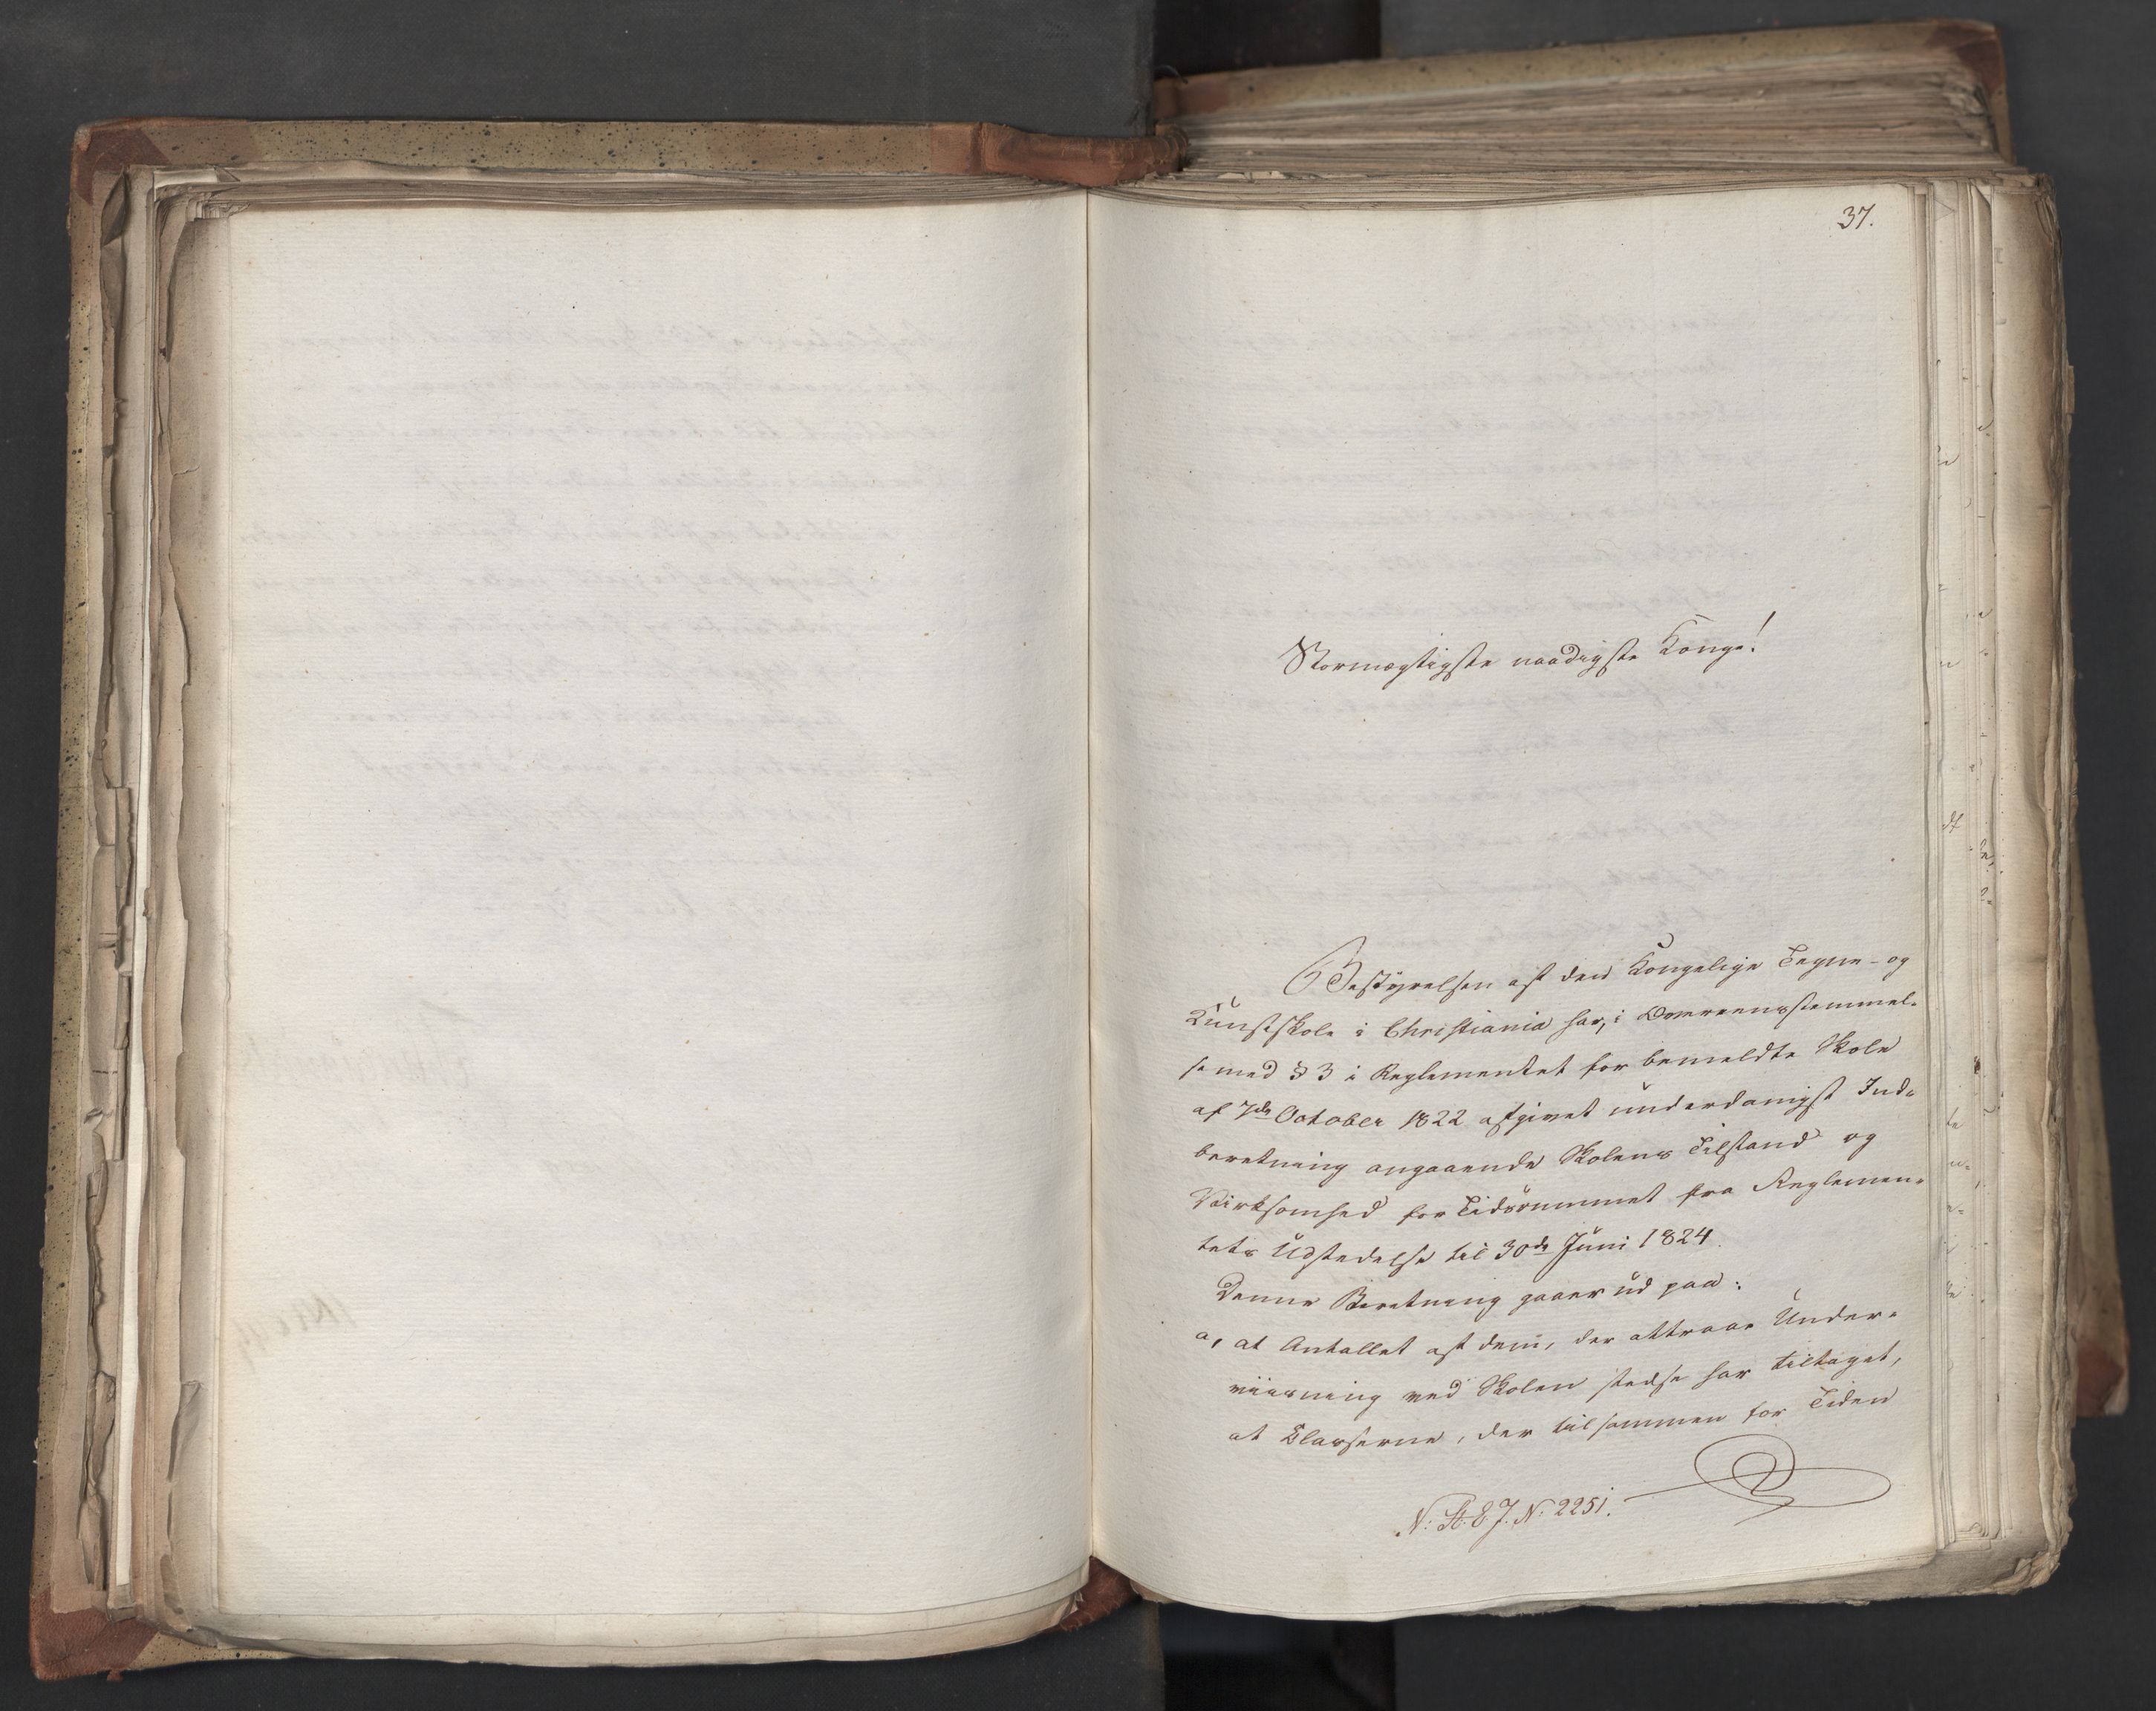 37.
Stormægtigste naadigste Konge!
Bestyrelsen af den Kongelige Tegne- og
Kunstskole i Christiania har, i Overeensstemmel-
se med § 3 i Reglementet for bemeldte Skole
af 7de October 1822 afgivet underdanigst Ind-
beretning angaaende Skolens Tilstand og
Virksomhed for Tidsrummet fra Reglemen-
tets Udstedelse til 30de Juni 1824.
Denne Beretning gaaer ud paa:
a, at Antallet af dem, der attraae Under-
viisning ved Skolen stedse har tiltaget,
at Classerne, der tilsammen for Tiden
N: St: E J. N: 2251.